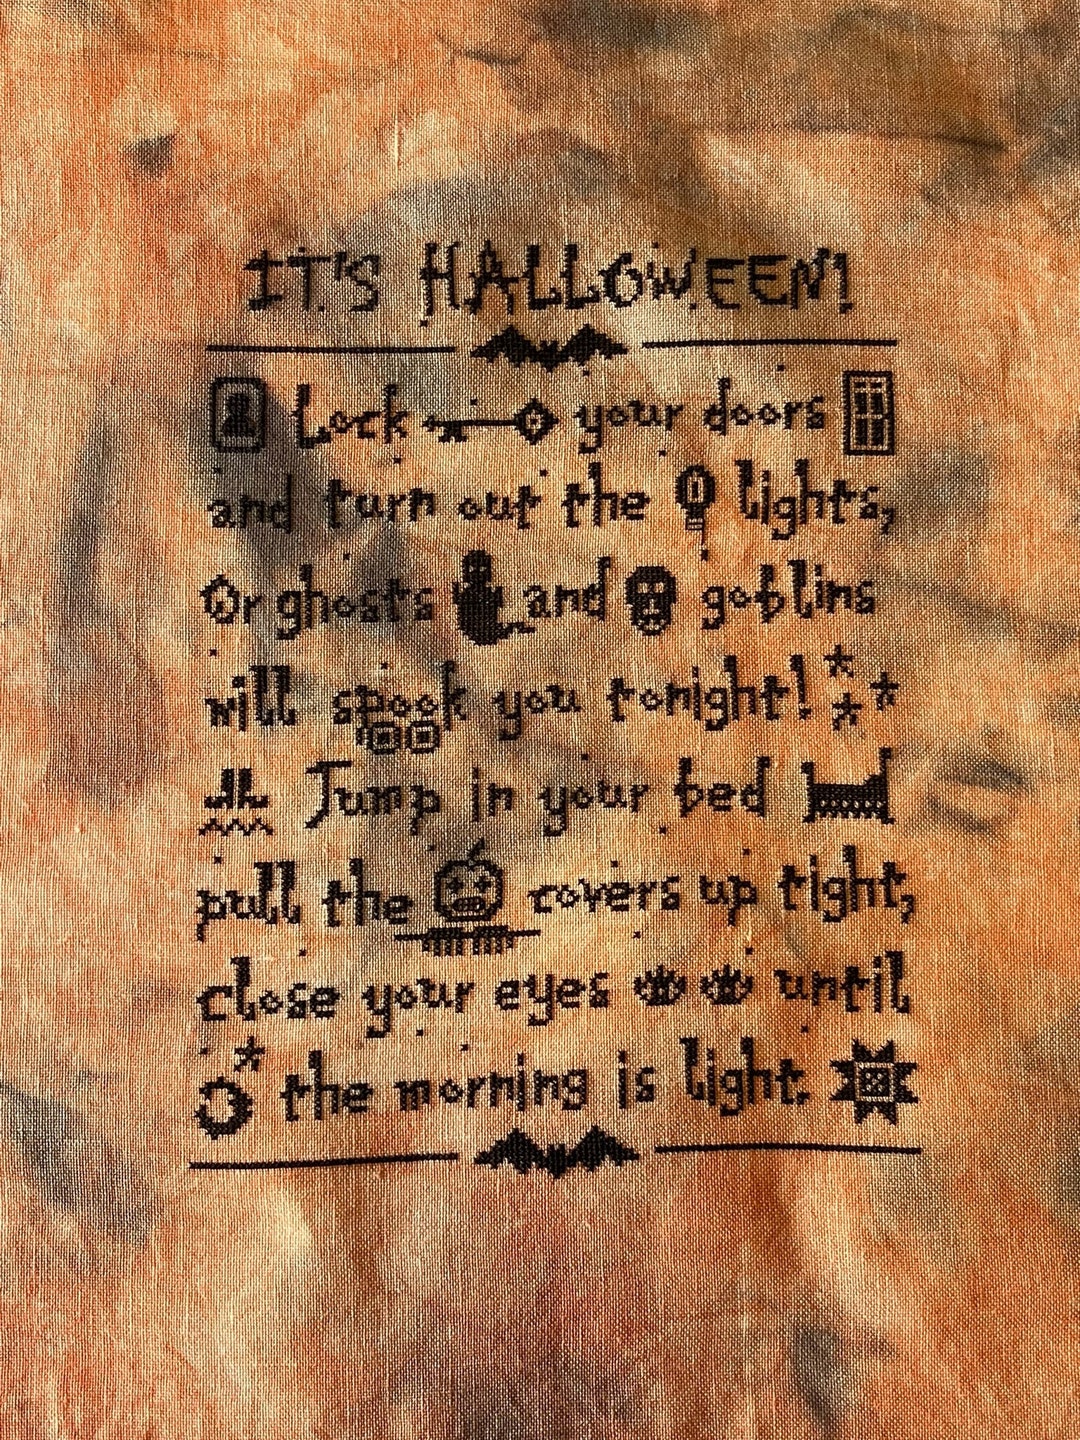 IT'S HALLOWEEN!
Lock your doors
and turn out the lights,
Or ghosts and goblins
will spook you tonight!
Jump in your bed
pull the covers up tight,
close your eyes until
the morning is light.